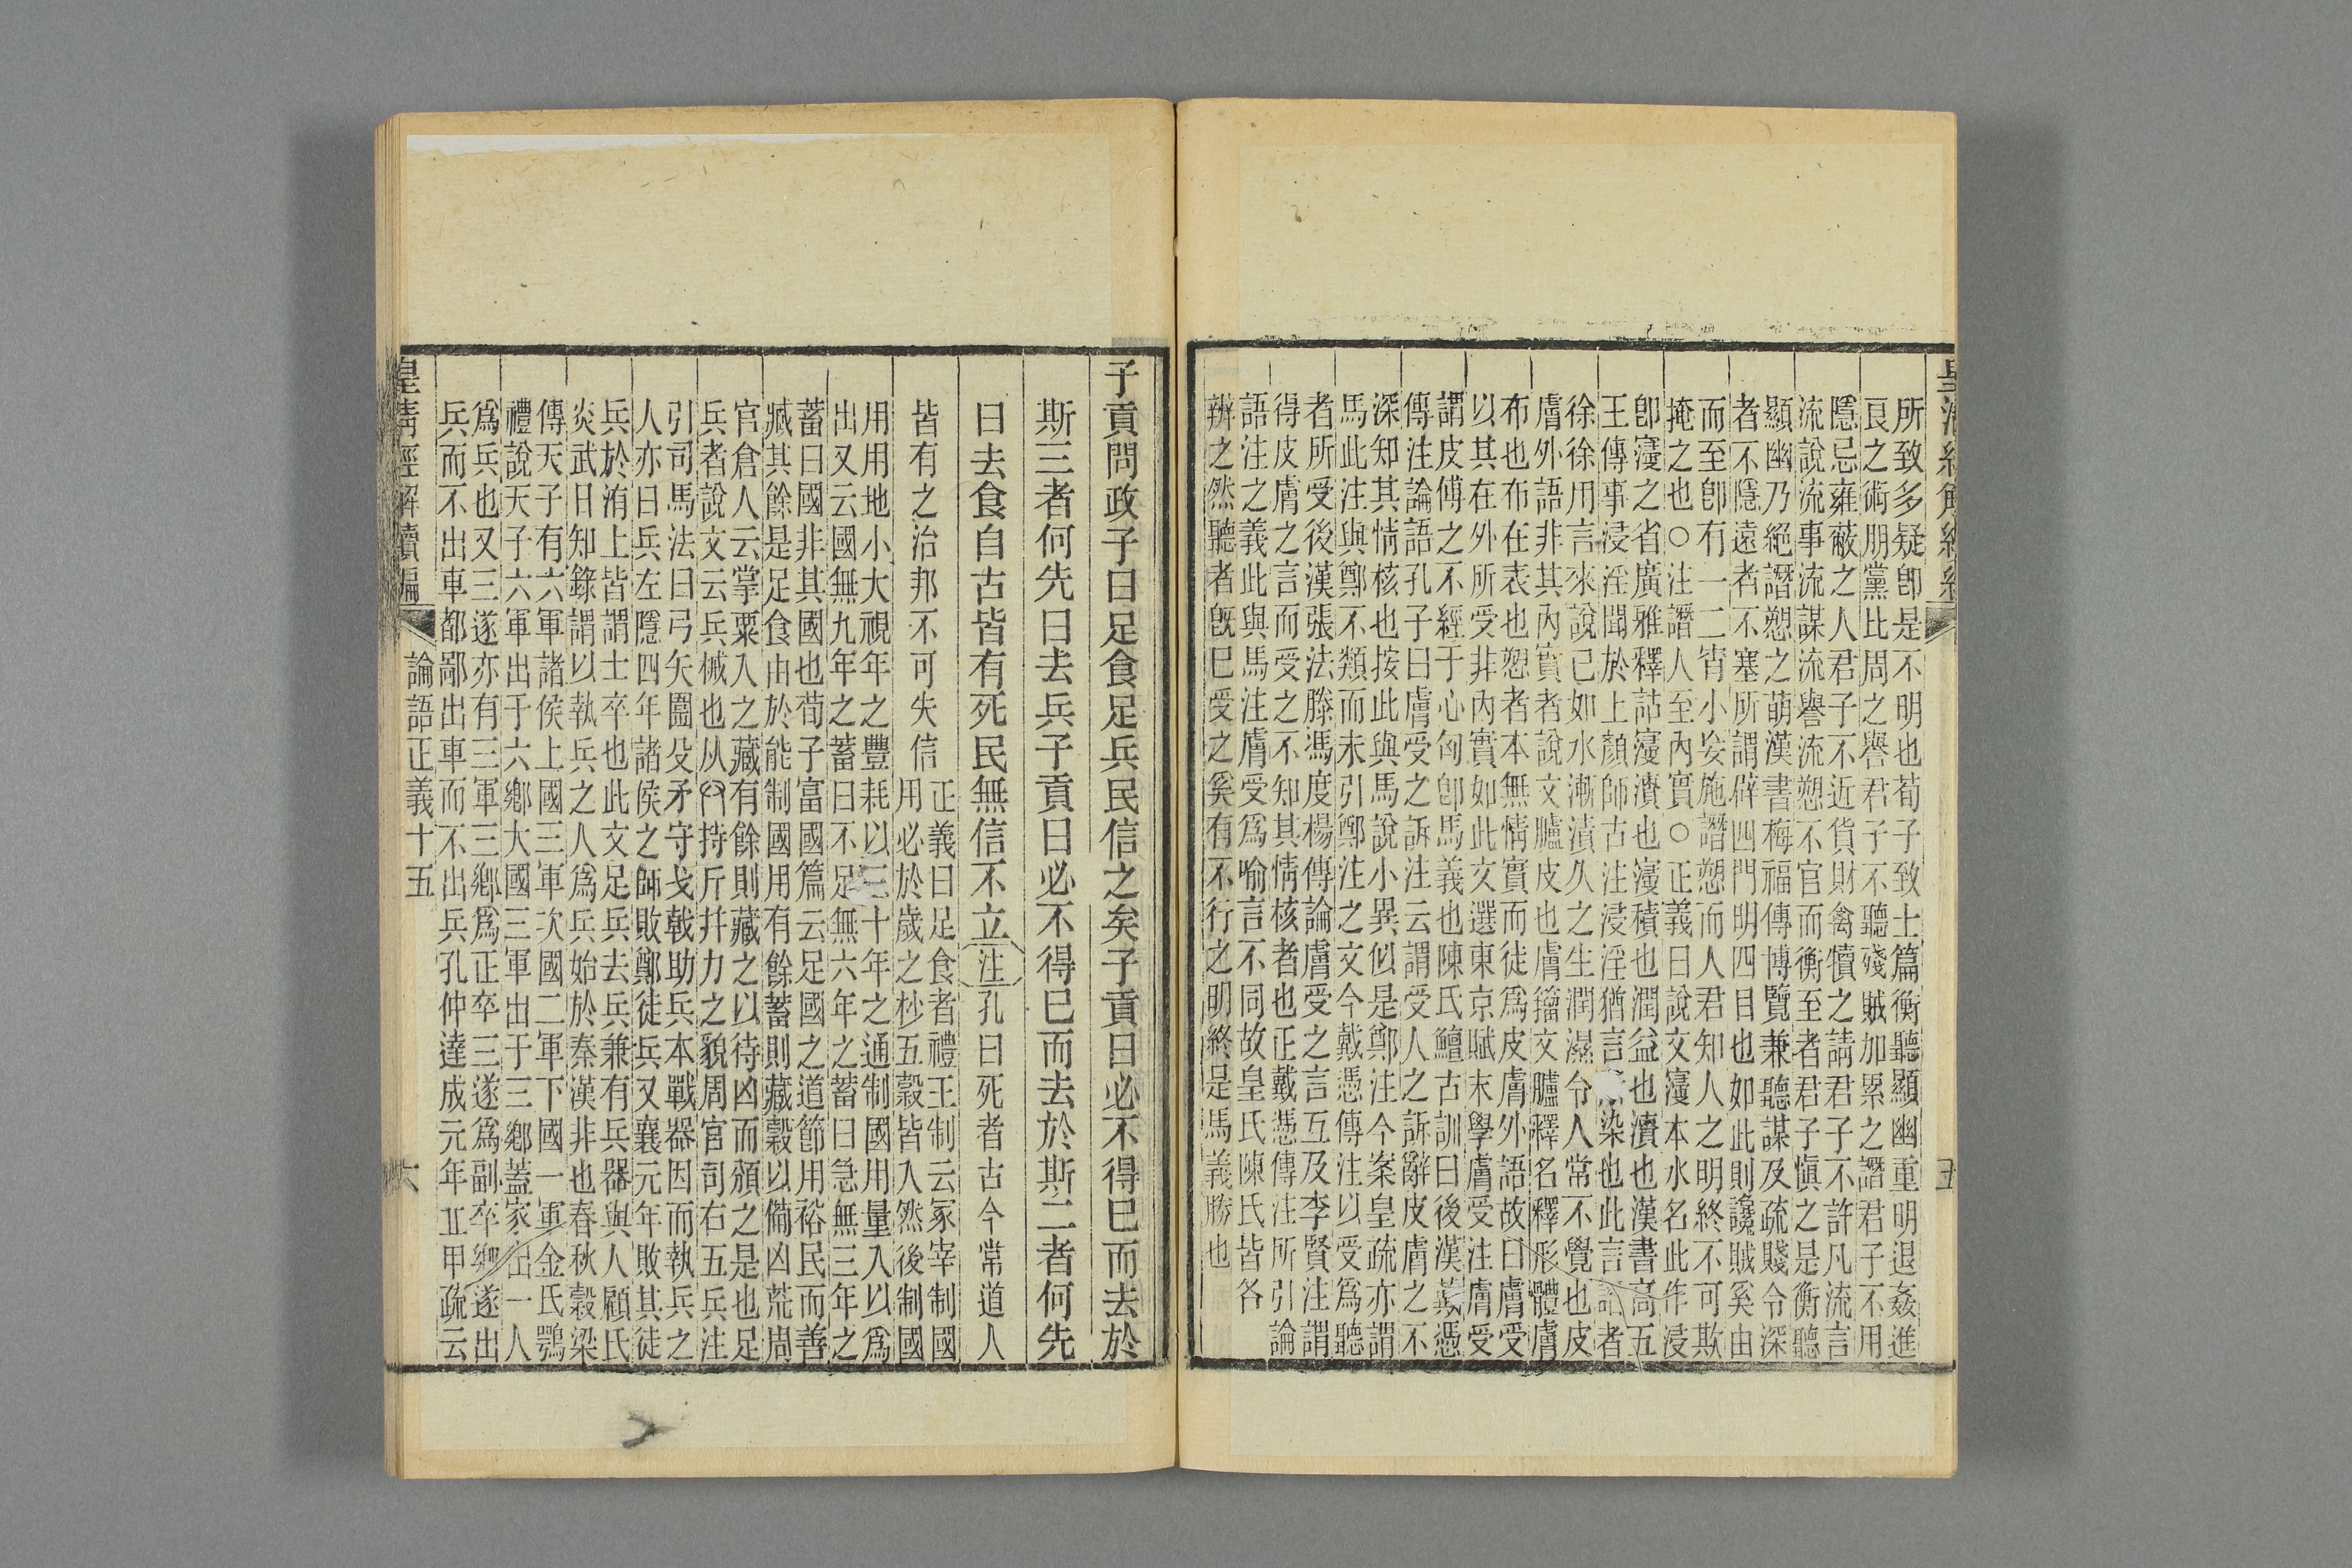 所致多疑卽是不明也荀子致士篇衡聽顯幽重明退姦進
良之術朋黨比周之譽君子不聽殘賊加累之譖君子不用
隱忌雍蔽之人君子不近貨財禽犢之請君子不許凡流言
流說流事流謀流譽流愬不官而衡至者君子愼之是衡聽
顯幽乃絕譖愬之萌漢書梅福傳博覽兼聽謀及疏賤令深
者不隱遠者不塞所謂辟四門明四目也如此則讒賊奚由
而至卽有一二宵小妄施譖愬而人君知人之明終不可欺
掩之也○注譖人至內實○正義曰說文寖本水名此作浸
卽寖之省廣雅釋詁寖漬也寖積也潤益也漬也漢書高五
王傳事浸淫聞於上顏師古注浸淫猶言染也此言者
徐徐用言來說己如水漸漬久之生潤濕令人常不覺也皮
膚外語非其內實者說文臚皮也膚籒文臚釋名釋形體膚
布也布在表也愬者本無情實而徒爲皮膚外語故曰膚受
以其在外所受非內實如此文選東京賦末學膚受注膚受
謂皮傅之不經于心匈卽馬義也陳氏鱣古訓曰後漢戴憑
傳注論語孔子曰膚受之訴注云謂受人之訴辭皮膚之不
深知其情核也按此與馬說小異似是鄭注今案皇疏亦謂
馬此注與鄭不類而未引鄭注之文今戴憑傳注以受爲聽
者所受後漢張法滕馮度楊傳論膚受之言互及李賢注謂
得皮膚之言而受之不知其情核者也正戴憑傳注所引論
語注之義此與馬注膚受爲喻言不同故皇氏陳氏皆各
辨之然聽者旣已受之奚有不行之明終是馬義勝也
子貢問政子曰足食足兵民信之矣子貢曰必不得已而去於
斯三者何先曰去兵子貢曰必不得已而去於斯二者何先
曰去食自古皆有死民無信不立注孔曰死者古今常道人
皆有之治邦不可失信
正義曰足食者禮王制云冢宰制國
用必於歲之杪五穀皆入然後制國
用用地小大視年之豐耗以三十年之通制國用量入以爲
出又云國無九年之蓄曰不足無六年之蓄曰急無三年之
蓄曰國非其國也荀子富國篇云足國之道節用裕民而善
臧其餘是足食由於能制國用有餘蓄則藏穀以備凶荒周
官倉人云掌粟入之藏有餘則藏之以待凶而頒之是也足
兵者說文云兵械也从𠬞持斤幷力之貌周官司右五兵注
引司馬法曰弓矢圍殳矛守戈戟助兵本戰器因而執兵之
人亦曰兵左隱四年諸侯之師敗鄭徒兵又襄元年敗其徒
兵於洧上皆謂士卒也此文足兵去兵兼有兵器與人顧氏
炎武日知錄謂以執兵之人爲兵始於秦漢非也春秋穀梁
傳天子有六軍諸侯上國三軍次國二軍下國一軍金氏鶚
禮說天子六軍出于六鄉大國三軍出于三鄉蓋家出一人
爲兵也又三遂亦有三軍三鄉爲正卒三遂爲副卒鄉遂出
兵而不出車都鄙出車而不出兵孔仲達成元年丘甲疏云
皇淸經解續編
論語正義十五
六